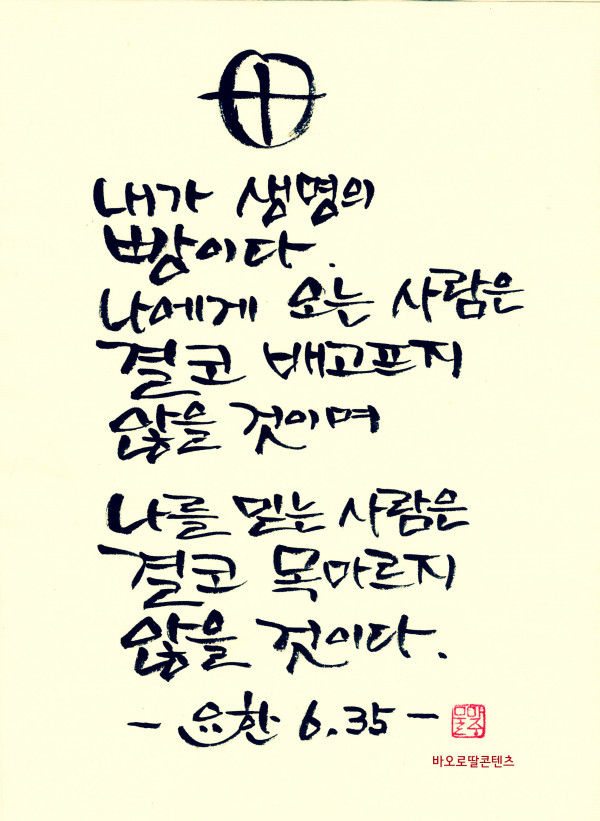 내가 생명의
빵이다.
나에게 오는 사람은
결코 배고프지
않을 것이며
나를 믿는 사람은
결코 목마르지
않을 것이다.
- 요한 6.35 -
바오로딸콘텐츠